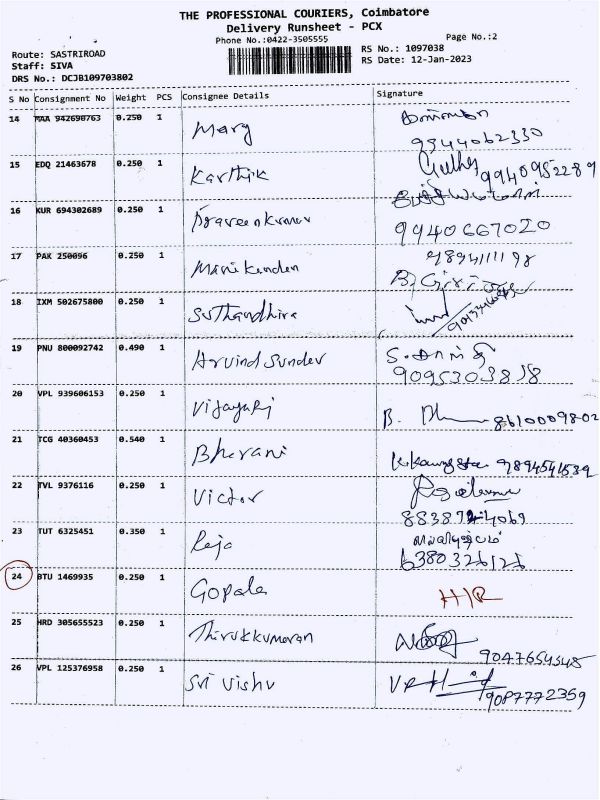 THE PROFESSIONAL COURIERS, Coimbatore
Delivery Runsheet - PCX
Phone No.:0422-3505555
Page No.:2
Route: SASTRIROAD
RS No.: 1097038
Staff: SIVA
RS Date: 12-Jan-2023
DRS No.: DCJB109703802
S No Consignment No Weight PCS Consignee Details Signature
14 MAA 942690763 0.250 1 Mary
9944062330
15 EDQ 21463678 0.250 1 Karthik
9940952289
16 KUR 694302689 0.250 1 Praveenkumar
9940667020
17 PAK 250096 0.250 1 Manikanden 9894111198
18 IXM 502675800 0.250 1 Suthandhira
19 PNU 800092742 0.490 1 Arvind Sunder
9095303818
20 VPL 939606153 0.250 1 Vijayaraj
B. 8610009802
21 TCG 40360453 0.540 1 Bharani
9894541539
22 TVL 9376116 0.250 1 Victor
4069
23 TUT 6325451 0.350 1 Raja
6380326126
24 BTU 1469935 0.250 1 Gopala H/R
25 HRD 305655523 0.250 1 Thirukkumaran
9047654545
26 VPL 125376958 0.250 1 Sri Vishu
9087772359